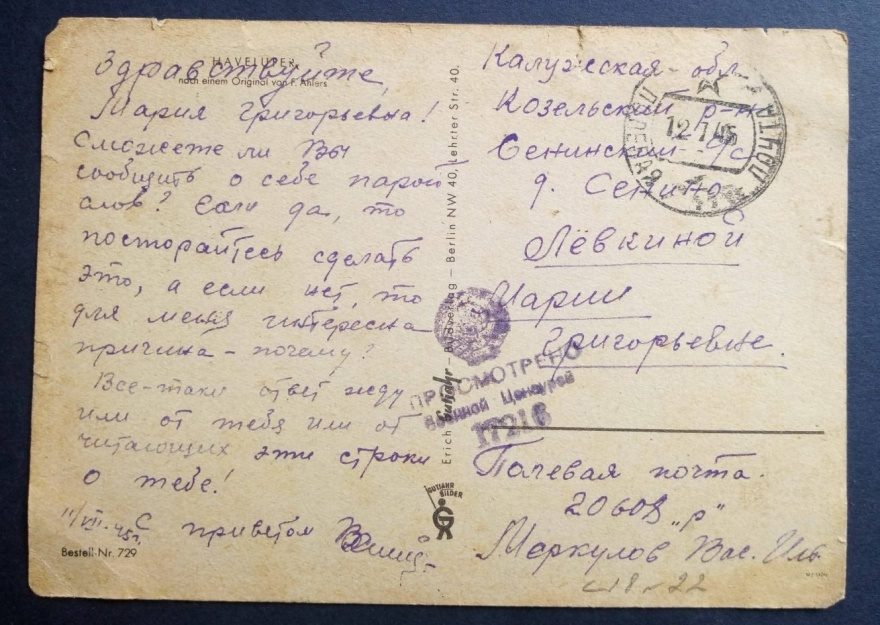 HAVELUFER
nach einem Original von F. Ahlers
Здравствуйте,
Мария Григорьевна!
Сможете ли Вы
сообщить о себе парой
слов? Если да, то
посторайтесь сделать
это, а если нет, то
для меня интересна
причина - почему?
Все-таки ответ жду
или от тебя или от
читающих эти строки
о тебе!
11/VII-45г. С приветом
Bestell-Nr. 729
Erich Gutjahr - Bildverlag - Berlin NW 40, Lehrter Str. 40.
GUTJAHR
BILDER
Калужская обл.
Козельский р-н
Сенинский с/с
д. Сенино
Лёвкиной
Марии
Григорьевне.
ПОЧТА
12 7 45
ПРОСМОТРЕНО
Военной Цензурой
17216
Полевая почта
20608 "р"
Меркулов Вас. Ил.